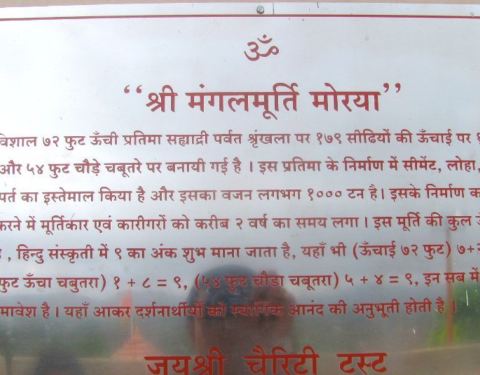 ॐ
‘‘श्री मंगलमूर्ति मोरया’’
विशाल ७२ फुट ऊँची प्रतिमा सह्याद्री पर्वत श्रृंखला पर १७९ सीढियों की ऊँचाई पर
और ५४ फुट चौड़े चबूतरे पर बनायी गई है । इस प्रतिमा के निर्माण में सीमेंट, लोहा,
का इस्तेमाल किया है और इसका वजन लगभग १००० टन है। इसके निर्माण
करने में मूर्तिकार एवं कारीगरों को करीब २ वर्ष का समय लगा । इस मूर्ति की कुल
, हिन्दु संस्कृती में ९ का अंक शुभ माना जाता है, यहाँ भी (ऊँचाई ७२ फुट) ७+
फुट ऊँचा चबुतरा) १ + ८ = ९, (५४ फुट चौडा चबूतरा) ५ + ४ = ९, इन सब में
मावेश है । यहाँ आकर दर्शनार्थीयों को स्वर्गिक आनंद की अनुभूती होती है ।
जयश्री चैरिटी ट्रस्ट